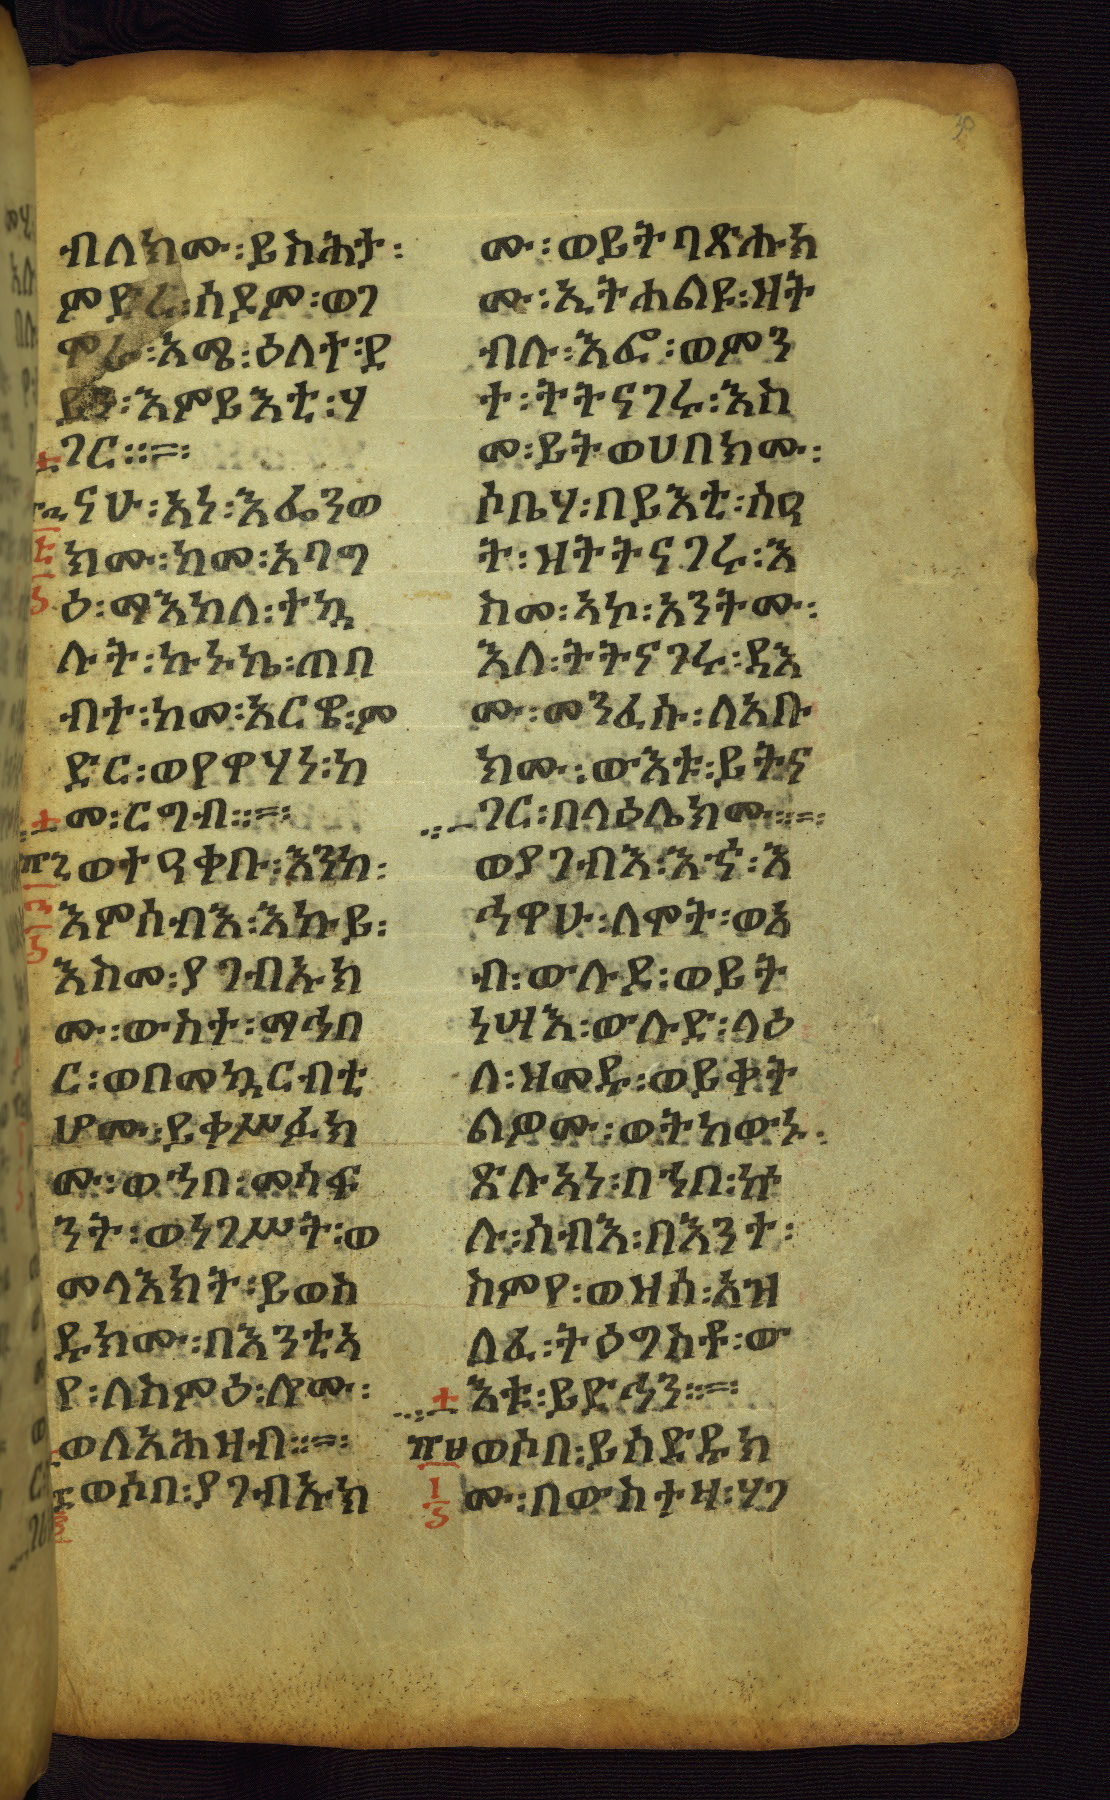 ብለክሙ፡ይስሕታ፡
ምድረ፡ሰዶም፡ወገ
ሞራ፡አሜ፡ዕለተ፡ደ
ይን፡እምይእቲ፡ሃ
ገር።=፡
ናሁ፡አነ፡እፌንወ
ክሙ፡ከመ፡አባግ
ዕ፡ማእከለ፡ተኲ
ላት፡ኩኑኬ፡ጠበ
ብተ፡ከመ፡አርዌ፡ም
ድር፡ወየዋሃነ፡ከ
መ፡ርግብ።=፡
ወተዓቀቡ፡እንከ፡
እምሰብእ፡እኩይ፡
እስመ፡ያገብኡክ
ሙ፡ውስተ፡ማኅበ
ር፡ወበመኳርብቲ
ሆሙ፡ይቀሥፉክ
ሙ፡ወኀበ፡መሳፍ
ንት፡ወነገሥት፡ወ
መላእክት፡ይወስ
ዱክሙ፡በእንቲአ
የ፡ለስምዕ፡ሎሙ፡
ወለአሕዛብ።=፡
ወሶበ፡ያገብኡክ
ሙ፡ወይትባጽሑክ
ሙ፡ኢትሐልዩ፡ዘት
ብሉ፡እፎ፡ወምን
ተ፡ትትናገሩ፡እስ
መ፡ይትወሀበክሙ፡
ሶቤሃ፡በይእቲ፡ሰዓ
ት፡ዘትትናገሩ፡እ
ስመ፡ኣኮ፡አንትሙ፡
እለ፡ትትናገሩ፡ዳእ
ሙ፡መንፈሱ፡ለአቡ
ክሙ፡ውእቱ፡ይትና
ገር፡በላዕሌክሙ።=፡
ወያገብእ፡እኁ፡እ
ኅዋሁ፡ለሞት፡ወአ
ብ፡ውሉደ፡ወይት
ነሣእ፡ውሉድ፡ላዕ
ለ፡ዘመዱ፡ወይቀት
ልዎሙ፡ወትከውኑ፡
ጽሉኣነ፡በኀበ፡ኵ
ሉ፡ሰብእ፡በእንተ፡
ስምየ፡ወዝሰ፡እዝ
ለፈ፡ትዕግስቶ፡ው
እቱ፡ይድኅን።=፡
፲፰ወሶበ፡ይሰድዱክ
ሙ፡በውስተ፡ዛ፡ሃገ